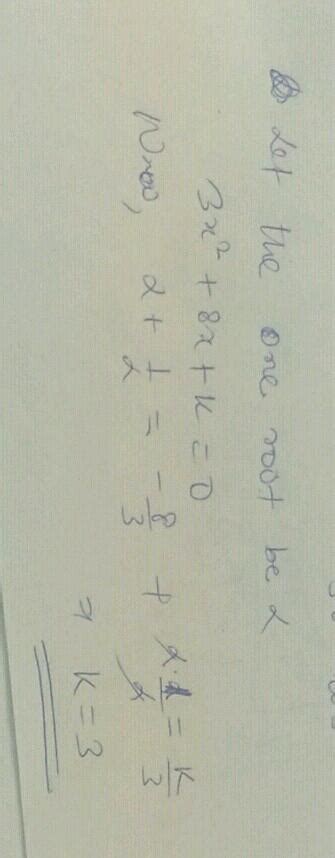 Let the one root be α
3x² + 8x + k = 0
Now, α + 1/α = - 8/3 + α · 1/α = k/3
⇒ k = 3